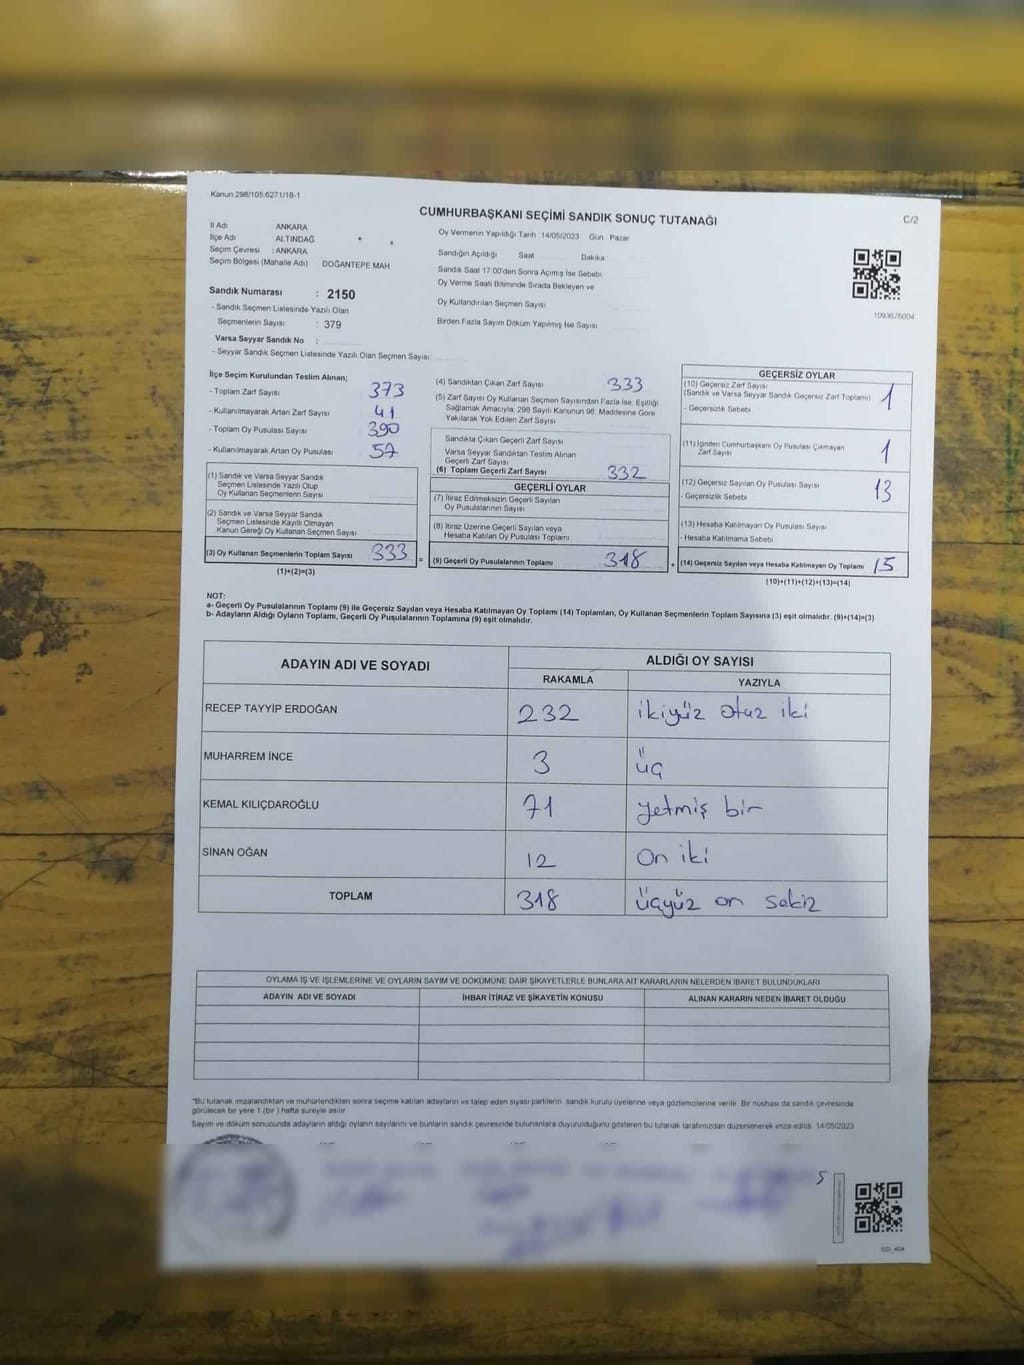 Kanun 298/105.6271/18-1
CUMHURBAŞKANI SEÇİMİ SANDIK SONUÇ TUTANAĞI
C/2
İl Adı ANKARA
İlçe Adı ALTINDAĞ
Seçim Çevresi : ANKARA
Seçim Bölgesi (Mahalle Adı) DOĞANTEPE MAH
Sandık Numarası : 2150
- Sandık Seçmen Listesinde Yazılı Olan
Seçmenlerin Sayısı : 379
Varsa Seyyar Sandık No :
- Seyyar Sandık Seçmen Listesinde Yazılı Olan Seçmen Sayısı
Oy Vermenin Yapıldığı Tarih 14/05/2023 Gün Pazar
Sandığın Açıldığı Saat Dakika
Sandık Saat 17.00'den Sonra Açımış İse Sebebi
Oy Verme Saati Bitiminde Sırada Bekleyen ve
Oy Kullandırılan Seçmen Sayısı
Birden Fazla Sayım Döküm Yapılmış İse Sayısı
1093676004
İlçe Seçim Kurulundan Teslim Alınan;
- Toplam Zarf Sayısı 373
- Kullanılmayarak Artan Zarf Sayısı 41
- Toplam Oy Pusulası Sayısı 390
- Kullanılmayarak Artan Oy Pusulası 57
(1) Sandık ve Varsa Seyyar Sandık
Seçmen Listesinde Yazılı Olup
Oy Kullanan Seçmenlerin Sayısı
(2) Sandık ve Varsa Seyyar Sandık
Seçmen Listesinde Kayıtlı Olmayan
Kanun Gereği Oy Kullanan Seçmen Sayısı
(3) Oy Kullanan Seçmenlerin Toplam Sayısı 333 =
(1)+(2)=(3)
(4) Sandıktan Çıkan Zarf Sayısı 333
(5) Zarf Sayısı Oy Kullanan Seçmen Sayısından Fazla İse, Eşitliği
Sağlamak Amacıyla, 298 Sayılı Kanunun 98. Maddesine Göre
Yakılarak Yok Edilen Zarf Sayısı
Sandıkla Çıkan Geçerli Zarf Sayısı
Varsa Seyyar Sandıktan Teslim Alınan
Geçerli Zarf Sayısı
(6) Toplam Geçerli Zarf Sayısı 332
GEÇERLİ OYLAR
(7) İtiraz Edilmeksizin Geçerli Sayılan
Oy Pusulalarının Sayısı
(8) İtiraz Üzerine Geçerli Sayılan veya
Hesaba Katılan Oy Pusulası Toplamı
(9) Geçerli Oy Pusulalarının Toplamı 318 +
GEÇERSİZ OYLAR
(10) Geçersiz Zarf Sayısı
(Sandık ve Varsa Seyyar Sandık Geçersiz Zarf Toplamı) 1
- Geçersizlik Sebebi
(11) İçinden Cumhurbaşkanı Oy Pusulası Çıkmayan
Zarf Sayısı 1
(12) Geçersiz Sayılan Oy Pusulası Sayısı 13
- Geçersizlik Sebebi
(13) Hesaba Katılmayan Oy Pusulası Sayısı
- Hesaba Katılmama Sebebi
(14) Geçersiz Sayılan veya Hesaba Katılmayan Oy Toplamı 15
(10)+(11)+(12)+(13)=(14)
NOT:
a- Geçerli Oy Pusulalarının Toplamı (9) ile Geçersiz Sayılan veya Hesaba Katılmayan Oy Toplamı (14) Toplamları, Oy Kullanan Seçmenlerin Toplam Sayısına (3) eşit olmalıdır. (9)+(14)=(3)
b- Adayların Aldığı Oyların Toplamı, Geçerli Oy Pusulalarının Toplamına (9) eşit olmalıdır.
ADAYIN ADI VE SOYADI
ALDIĞI OY SAYISI
RAKAMLA YAZIYLA
RECEP TAYYİP ERDOĞAN 232 ikiyüz otuz iki
MUHARREM İNCE 3 üç
KEMAL KILIÇDAROĞLU 71 yetmiş bir
SİNAN OĞAN 12 on iki
TOPLAM 318 üçyüz on sekiz
OYLAMA İŞ VE İŞLEMLERİNE VE OYLARIN SAYIM VE DÖKÜMÜNE DAİR ŞİKAYETLERLE BUNLARA AİT KARARLARIN NELERDEN İBARET BULUNDUKLARI
ADAYIN ADI VE SOYADI İHBAR İTİRAZ VE ŞİKAYETİN KONUSU ALINAN KARARIN NEDEN İBARET OLDUĞU
*Bu tutanak imzalandıktan ve mühürlendikten sonra seçime katılan adayların ve talep eden siyasi partilerin sandık kurulu üyelerine veya gözlemcilerine verilir. Bir nüshası da sandık çevresinde
görülecek bir yere 1 (bir) hafta süreyle asılır.
Sayım ve döküm sonucunda adayların aldığı oyların sayılarını ve bunların sandık çevresinde bulunanlara duyurulduğunu gösteren bu tutanak tarafımızdan düzenlenerek imza edildi. 14/05/2023
5